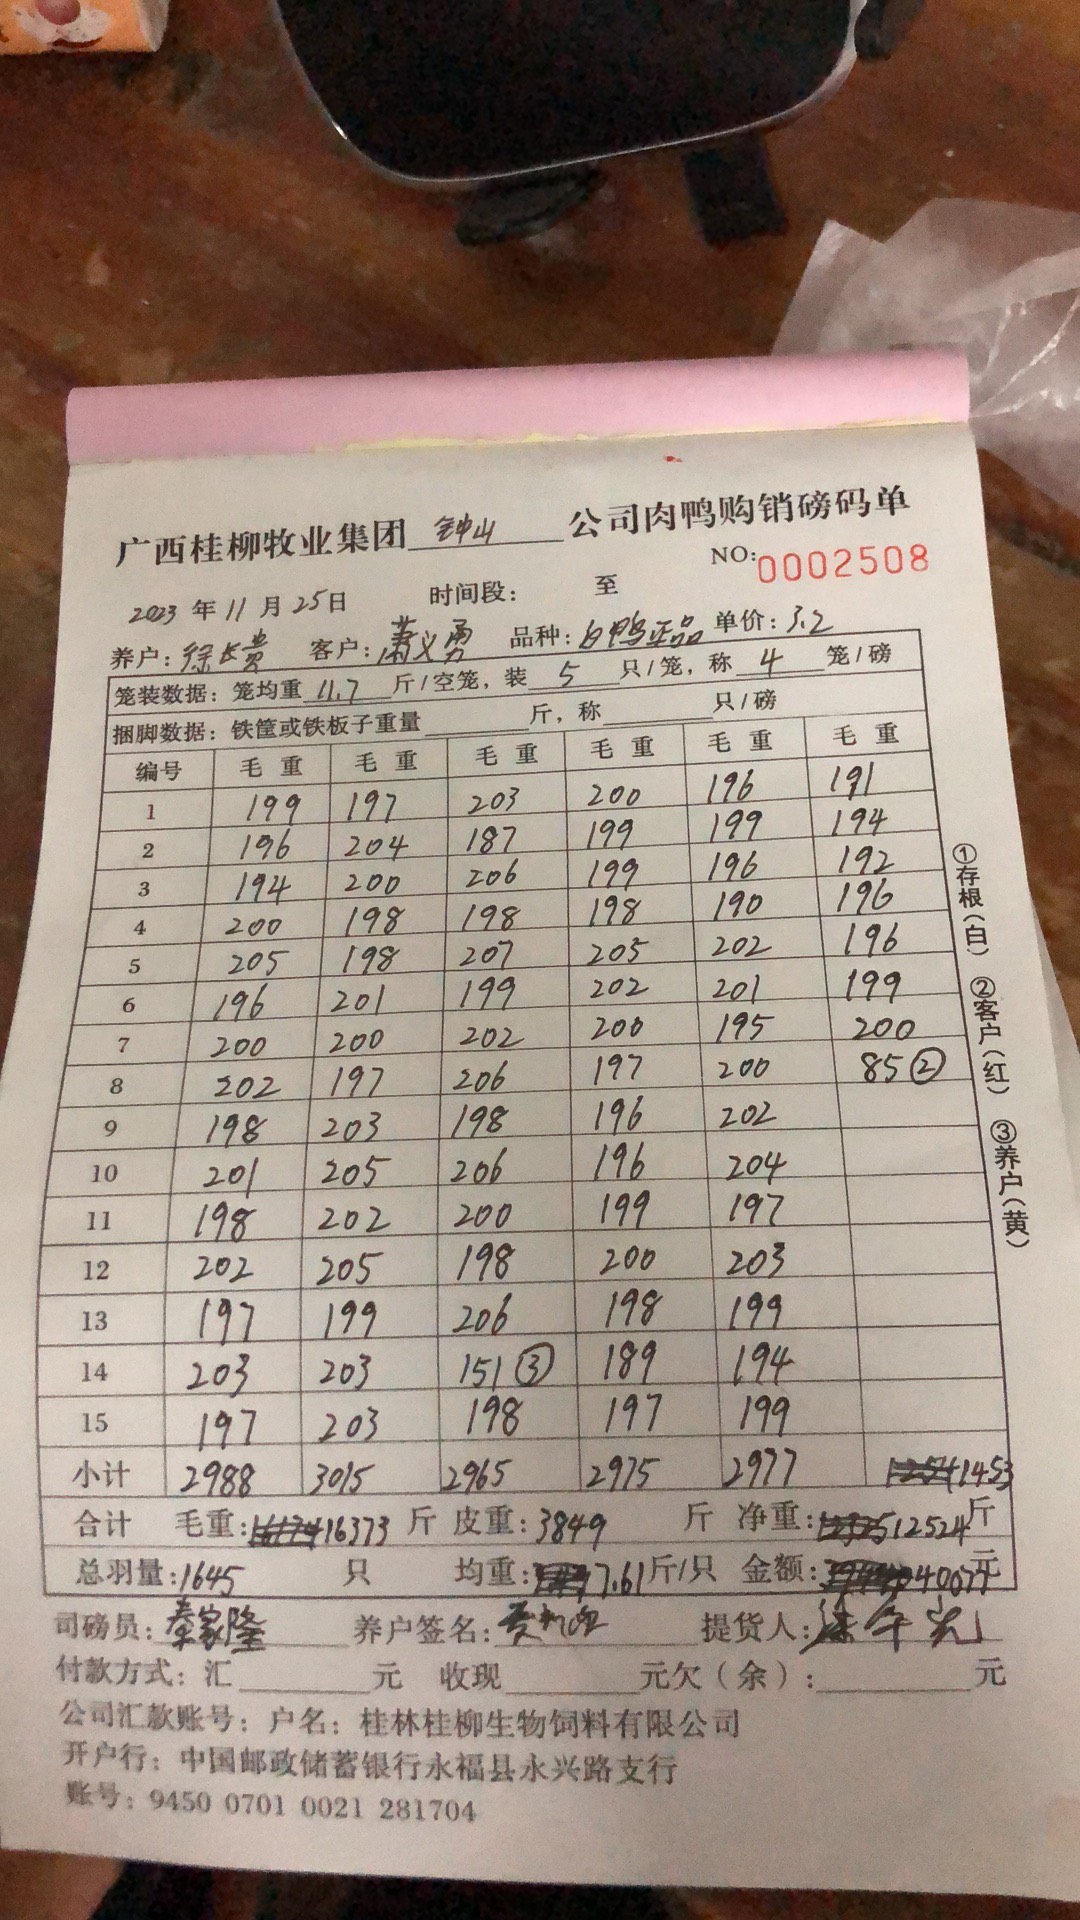 广西桂柳牧业集团 钟山 公司肉鸭购销磅码单
NO:0002508
2023 年 11 月 25 日 时间段: 至
养户:徐长贵 客户:萧义勇 品种:白鸭正品 单价:3.2
笼装数据: 笼均重 11.7 斤/空笼, 装 5 只/笼, 称 4 笼/磅
捆脚数据: 铁筐或铁板子重量 斤, 称 只/磅
编号 毛重 毛重 毛重 毛重 毛重 毛重
1 199 197 203 200 196 191
2 196 204 187 199 199 194
3 194 200 206 199 196 192
4 200 198 198 198 190 196
5 205 198 207 205 202 196
6 196 201 199 202 201 199
7 200 200 202 200 195 200
8 202 197 206 197 200 85②
9 198 203 198 196 202
10 201 205 206 196 204
11 198 202 200 199 197
12 202 205 198 200 203
13 197 199 206 198 199
14 203 203 151③ 189 194
15 197 203 198 197 199
小计 2988 3015 2965 2975 2977 1453
合计 毛重:16373 斤 皮重:3849 斤 净重:12524 斤
总羽量:1645 只 均重:7.61 斤/只 金额:40077 元
司磅员:秦家隆 养户签名: 提货人:
付款方式: 汇 元 收现 元欠(余): 元
公司汇款账号: 户名: 桂林桂柳生物饲料有限公司
开户行: 中国邮政储蓄银行永福县永兴路支行
账号: 9450 0701 0021 281704
①存根(白) ②客户(红) ③养户(黄)